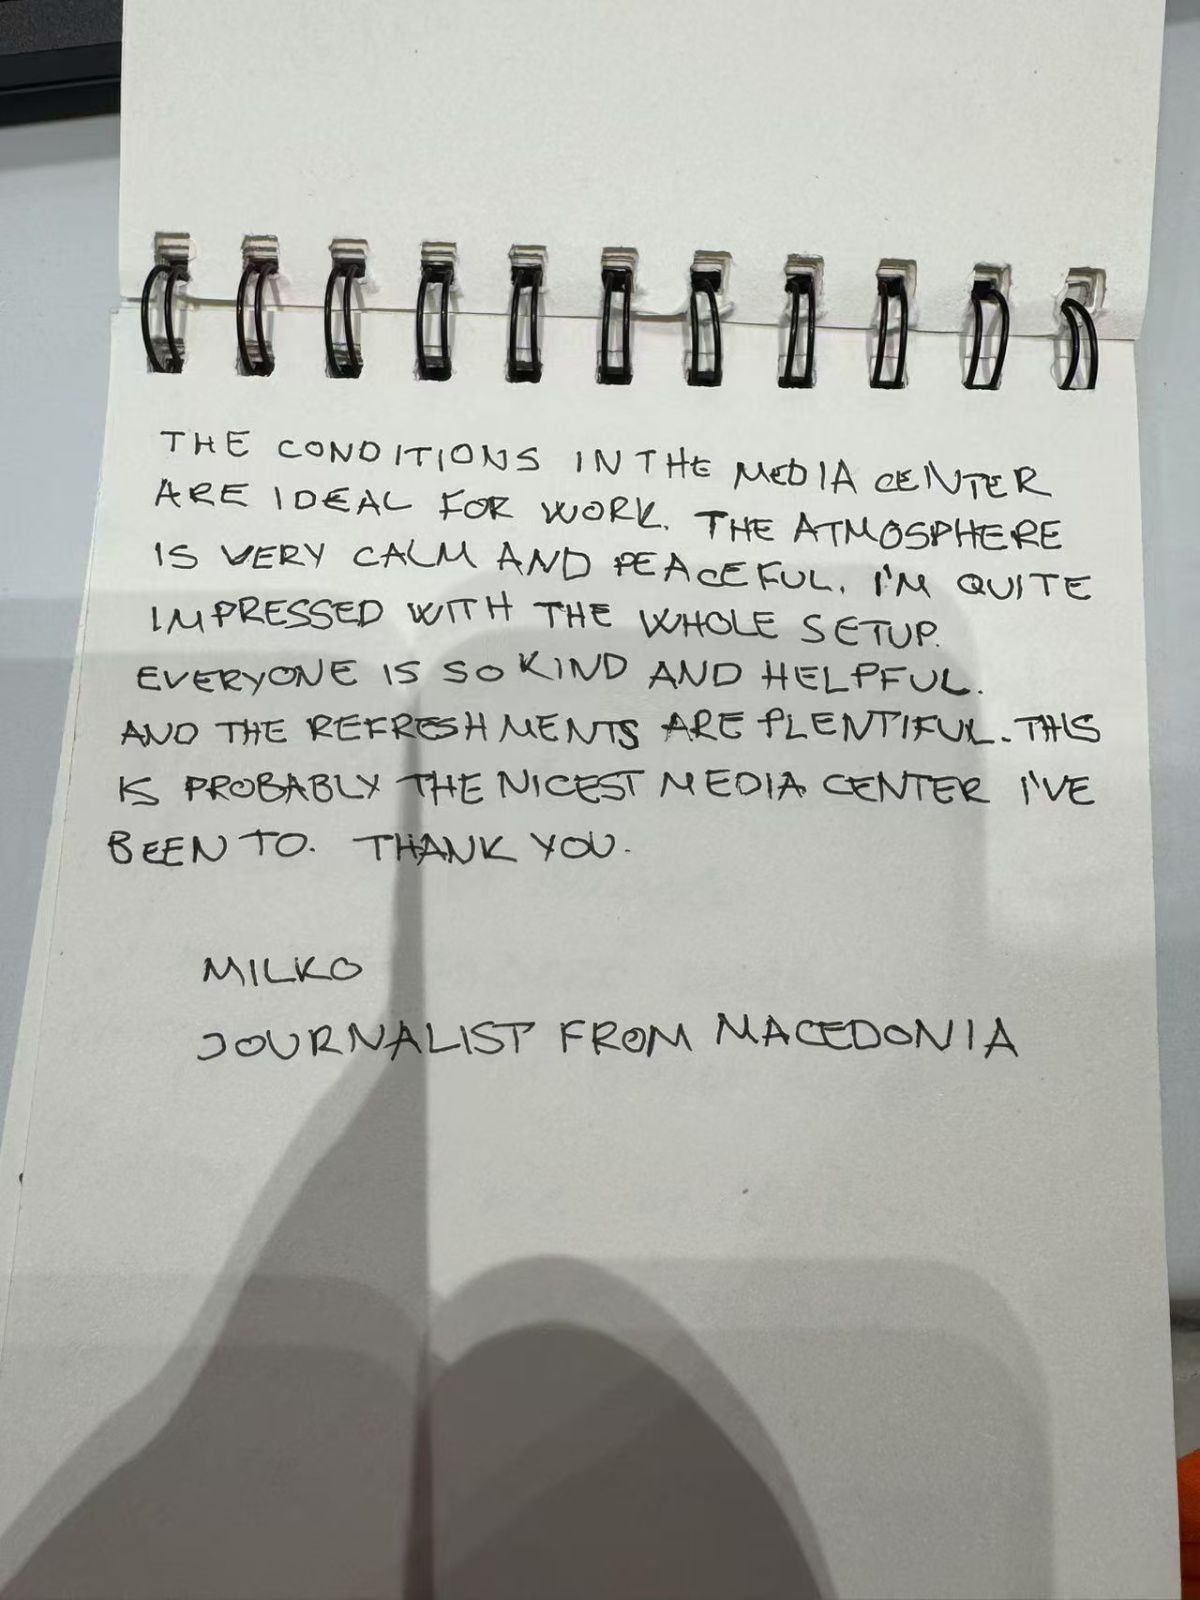 THE CONDITIONS IN THE MEDIA CENTER
ARE IDEAL FOR WORK. THE ATMOSPHERE
IS VERY CALM AND PEACEFUL. I'M QUITE
IMPRESSED WITH THE WHOLE SETUP.
EVERYONE IS SO KIND AND HELPFUL.
AND THE REFRESHMENTS ARE PLENTIFUL. THIS
IS PROBABLY THE NICEST MEDIA CENTER I'VE
BEEN TO. THANK YOU.
MILKO
JOURNALIST FROM MACEDONIA